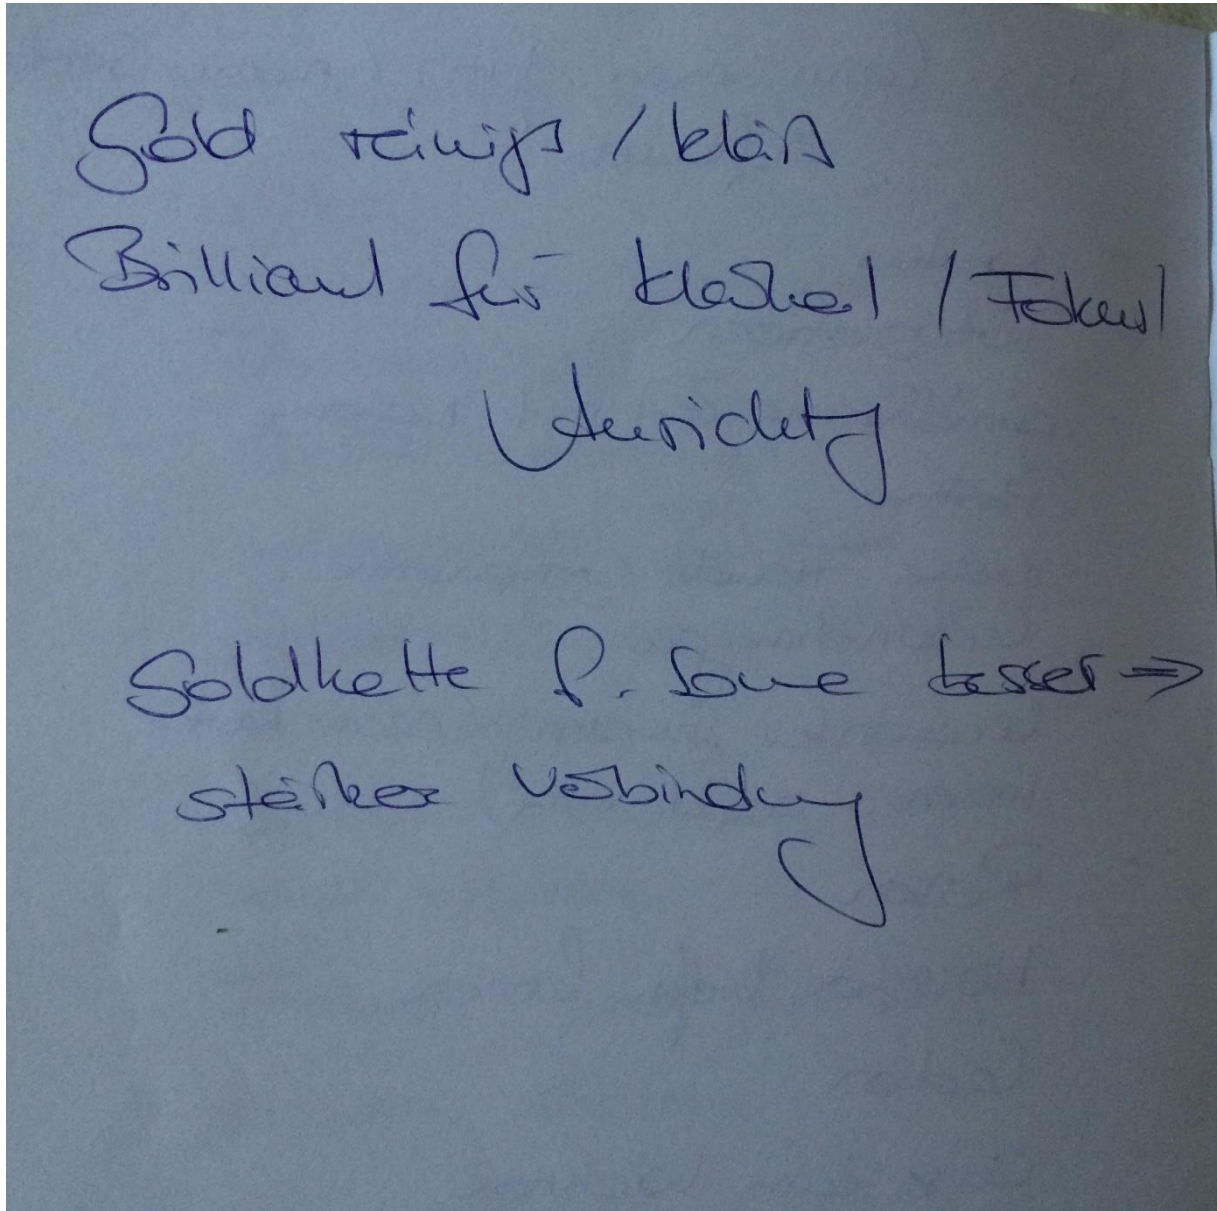 Gold reinigt / klärt
Brilliant für Klarheit / Fokus /
Ausrichtung
Goldkette f. Sonne besser ⇒
stärkere Verbindung